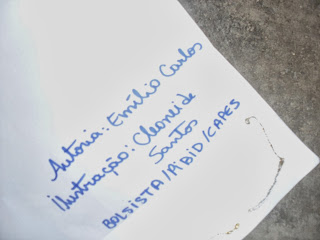 Autoria: Emílio Carlos
Ilustração: Cleoneide
Santos
BOLSISTA/PIBID/CAPES